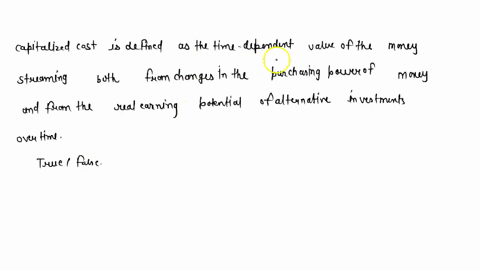 capitalized cost is defined as the time-dependent value of the money
streaming both from changes in the purchasing power of money
and from the real earning potential of alternative investments
over time.
True / false.